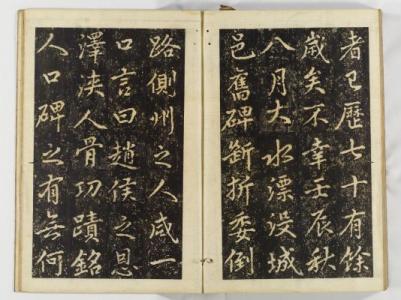 者已歷七十有餘
歲矣不幸壬辰秋
八月大水漂没城
邑舊碑斷折委倒
路側州之人咸一
口言曰趙侯之恩
澤浹人骨功蹟銘
人口碑之有無何